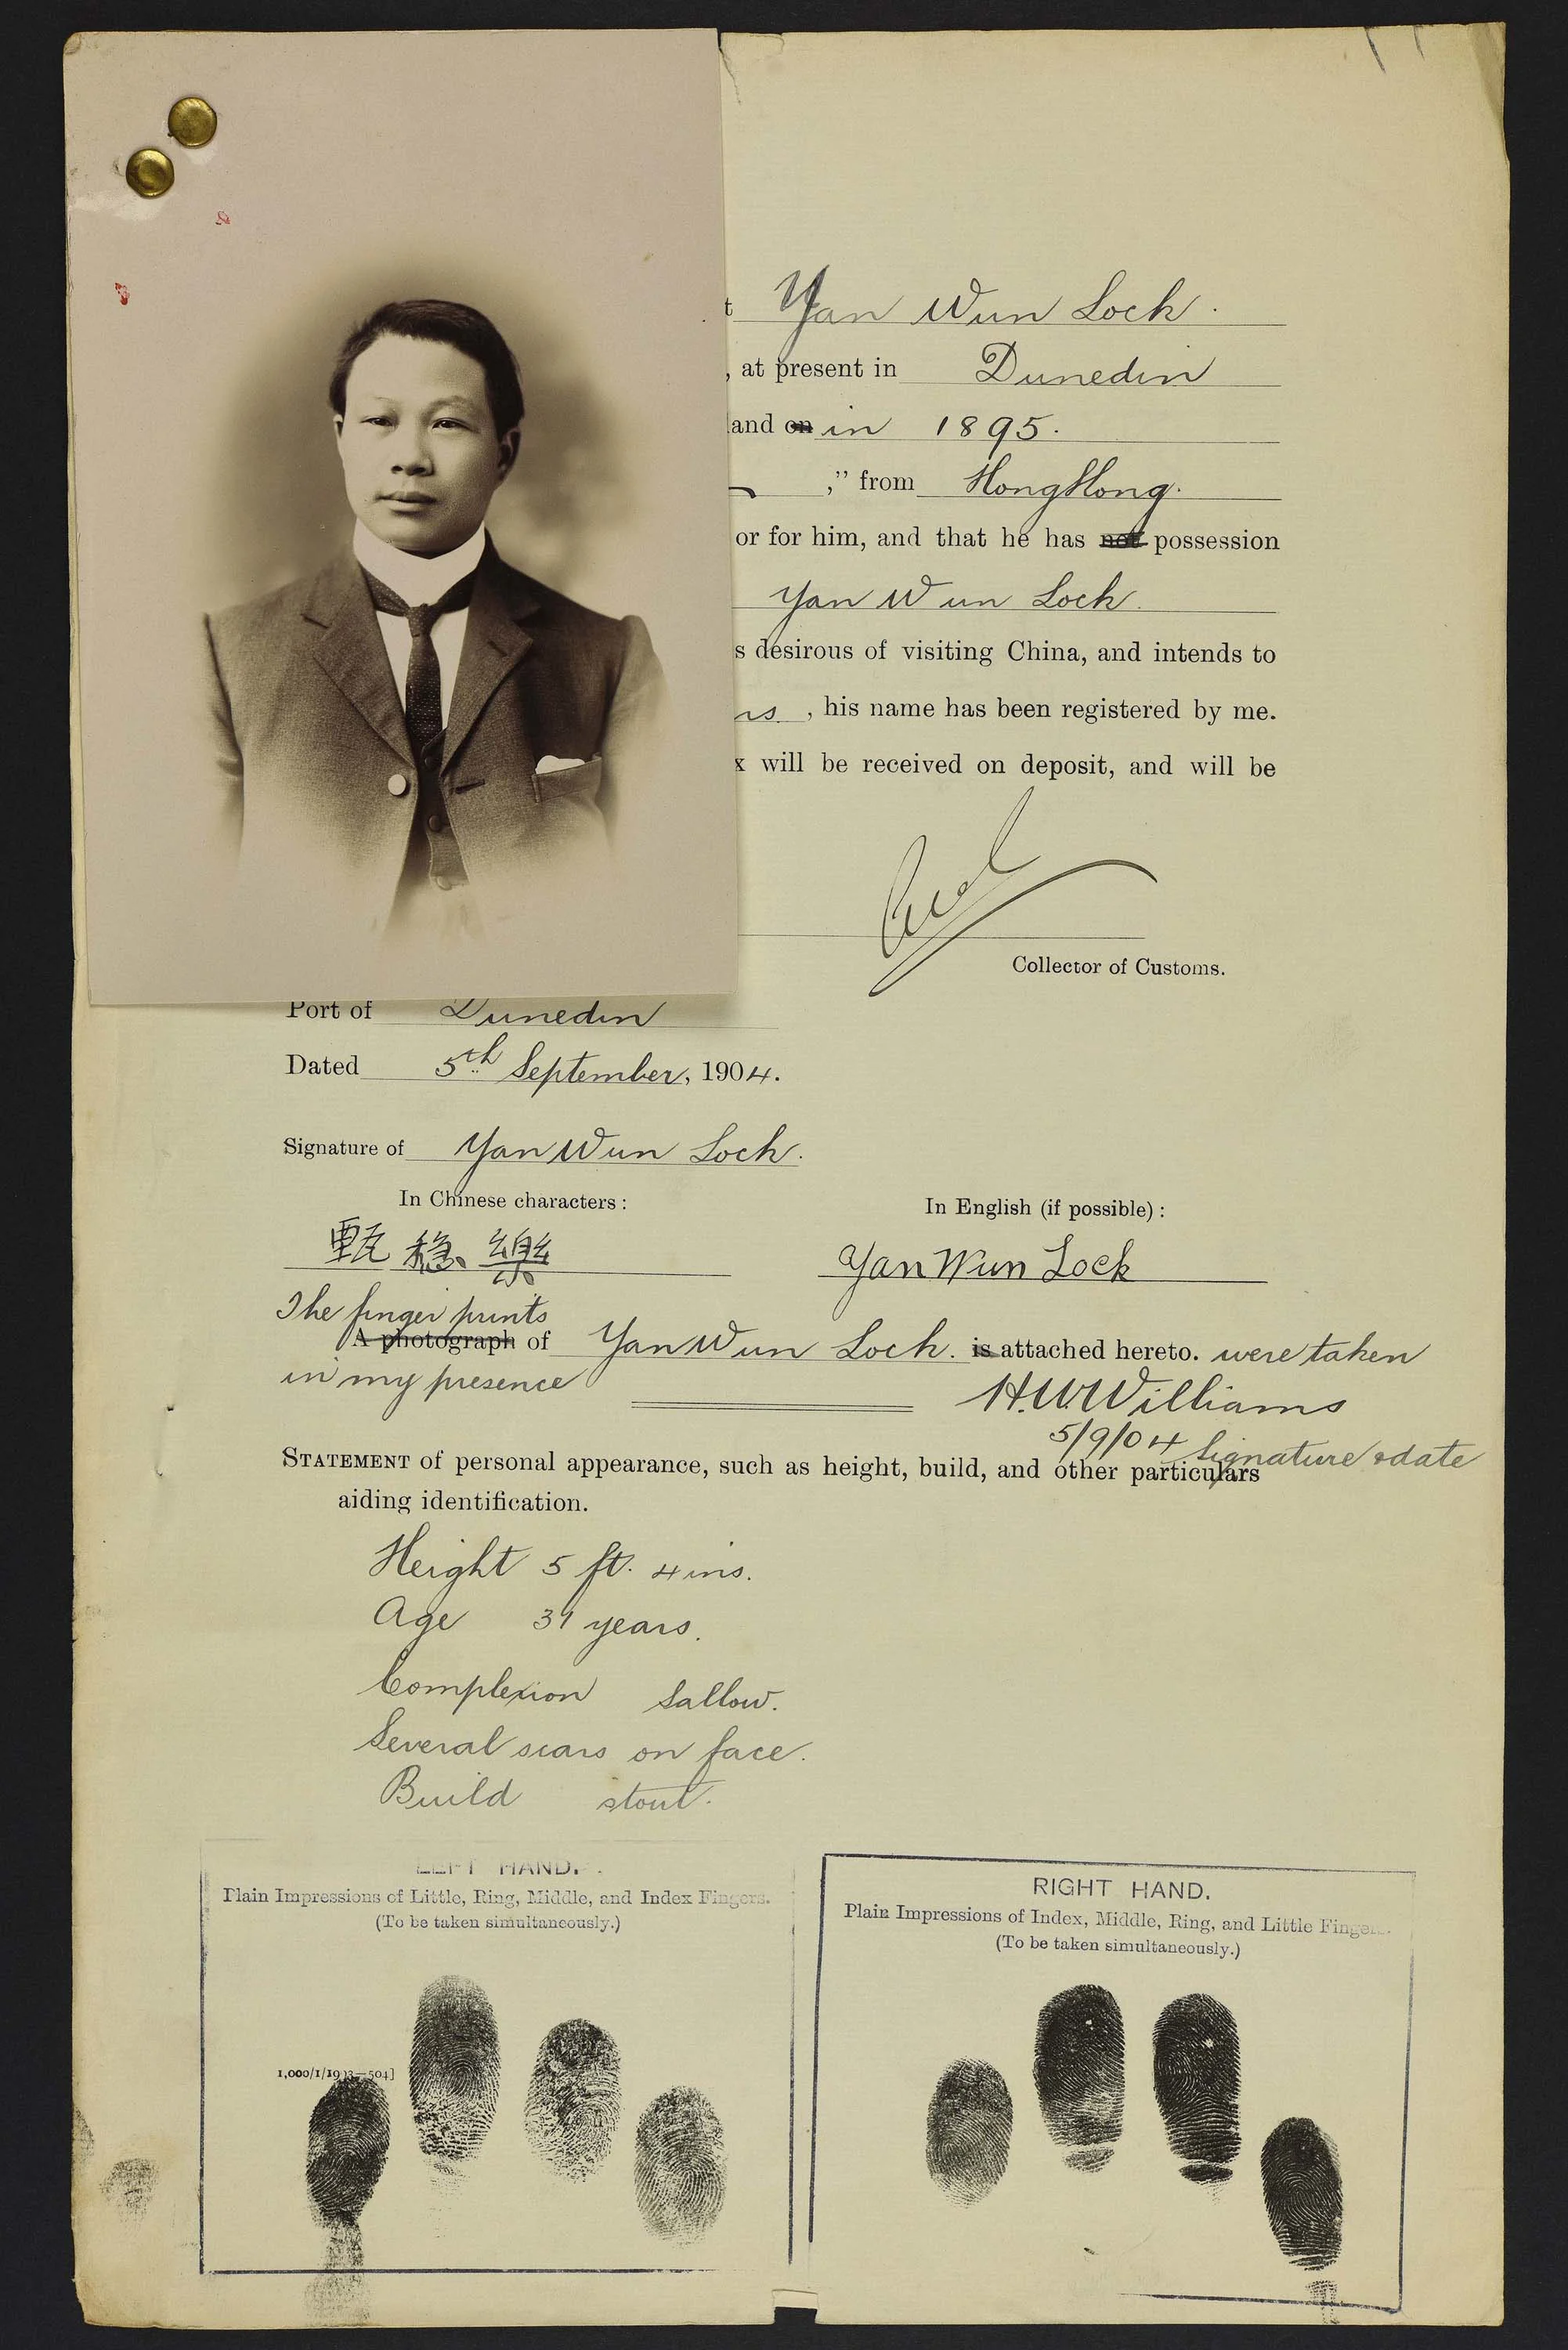 t Yan Wun Lock.
, at present in Dunedin
land on in 1895.
," from HongKong.
or for him, and that he has not possession
Yan Wun Lock.
s desirous of visiting China, and intends to
rs , his name has been registered by me.
x will be received on deposit, and will be
Collector of Customs.
Port of Dunedin
Dated 5th September, 1904.
Signature of Yan Wun Lock.
In Chinese characters: In English (if possible):
甄穏樂 Yan Wun Lock
The finger prints
A photograph of Yan Wun Lock. is attached hereto. were taken
in my presence
H.W. Williams
5/9/04 Signature & date
STATEMENT of personal appearance, such as height, build, and other particulars
aiding identification.
Height 5 ft. 4 ins.
Age 31 years.
Complexion Sallow.
Several scars on face.
Build stout.
LEFT HAND.
Plain Impressions of Little, Ring, Middle, and Index Fingers.
(To be taken simultaneously.)
RIGHT HAND.
Plain Impressions of Index, Middle, Ring, and Little Fingers.
(To be taken simultaneously.)
1,000/1/1903—504]